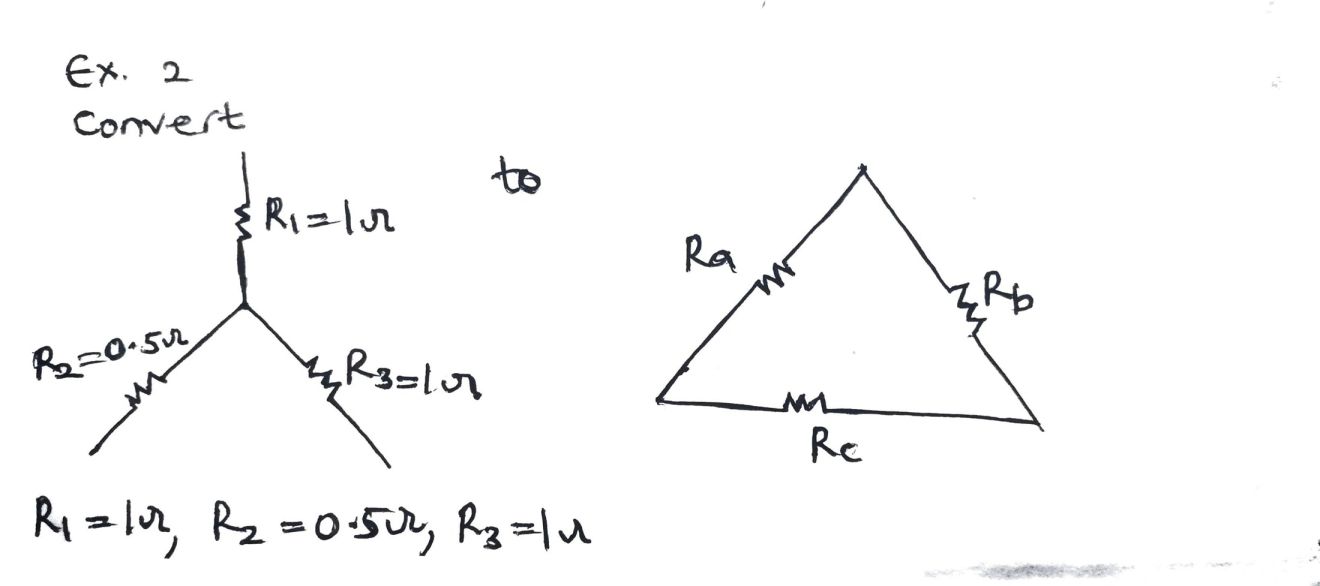 Ex. 2
Convert
to
R1=1Ω
Ra
Rb
R2=0.5Ω
R3=1Ω
Rc
R1=1Ω, R2=0.5Ω, R3=1Ω